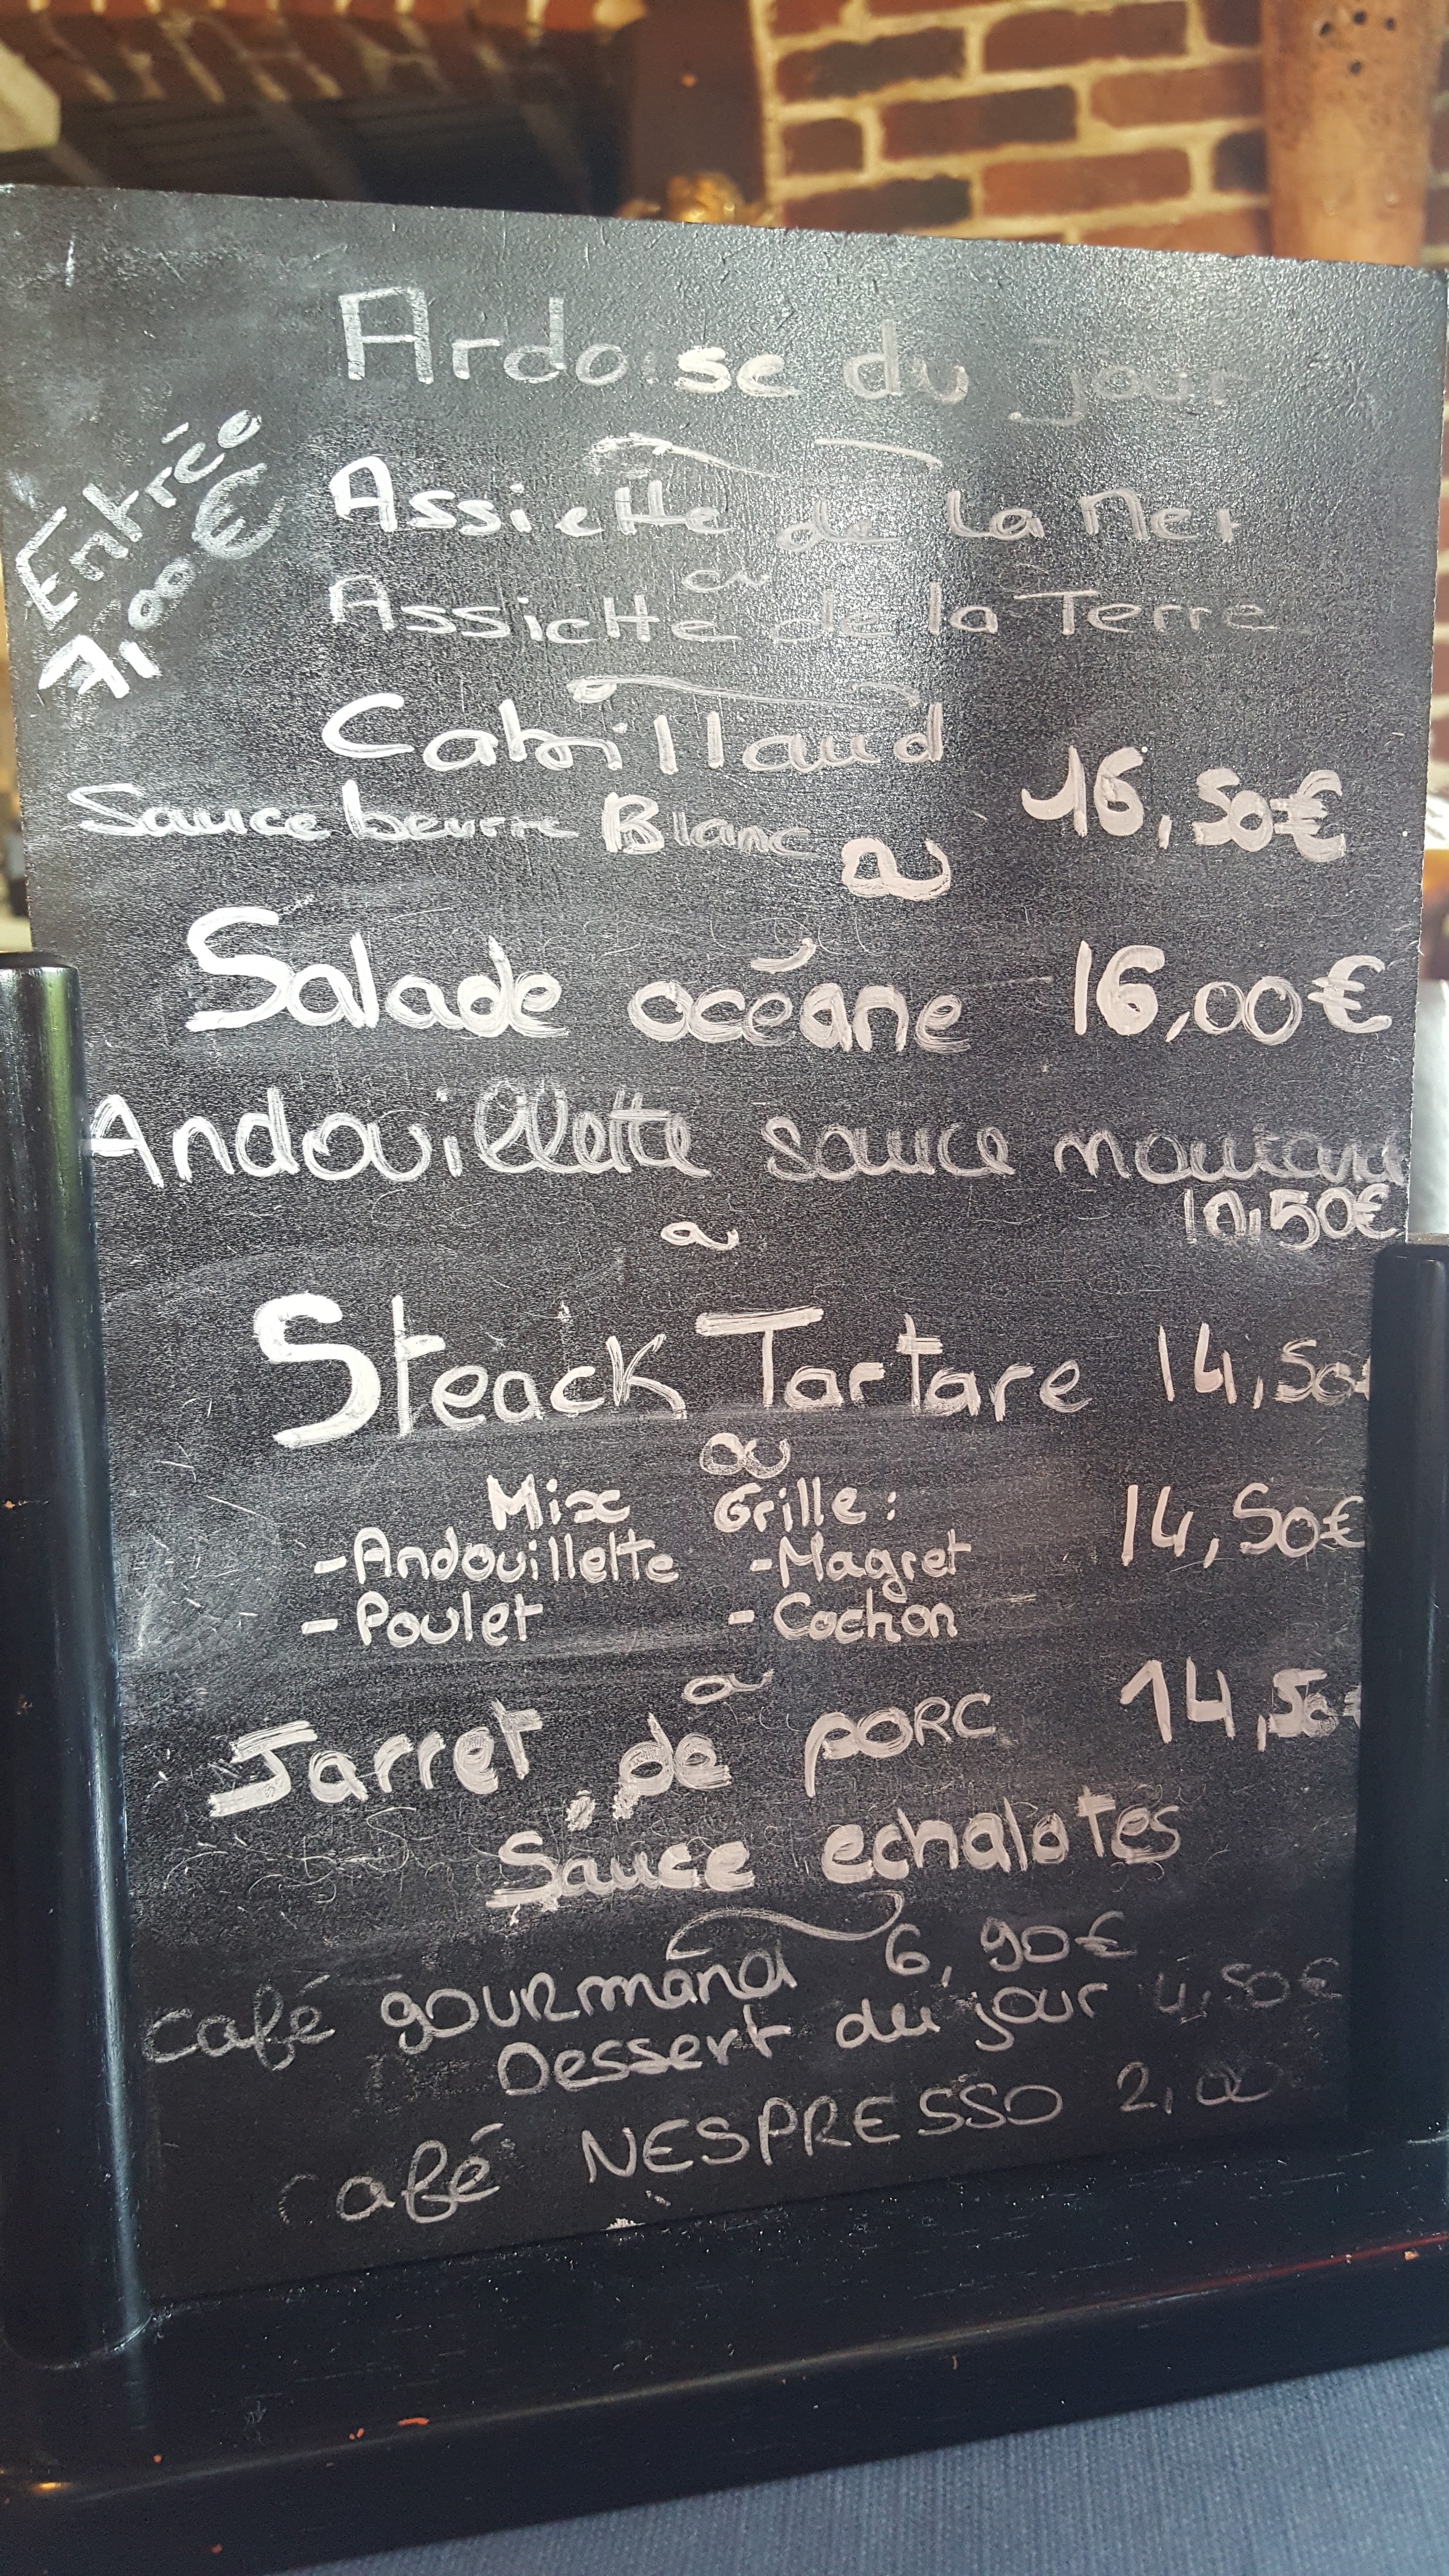 Ardoise du jour
Entrée
7,00€
Assiette de la Mer
ou
Assiette de la Terre
Cabrillaud
Sauce beurre Blanc
16,50€
ou
Salade océane 16,00€
Andouillette sauce moutard
10,50€
ou
Steack Tartare 14,50€
ou
Mix Grille: 14,50€
-Andouillette -Magret
-Poulet -Cochon
ou
Jarret de porc 14,50€
Sauce echalotes
café gourmand 6,90€
Dessert du jour 4,50€
café NESPRESSO 2,00